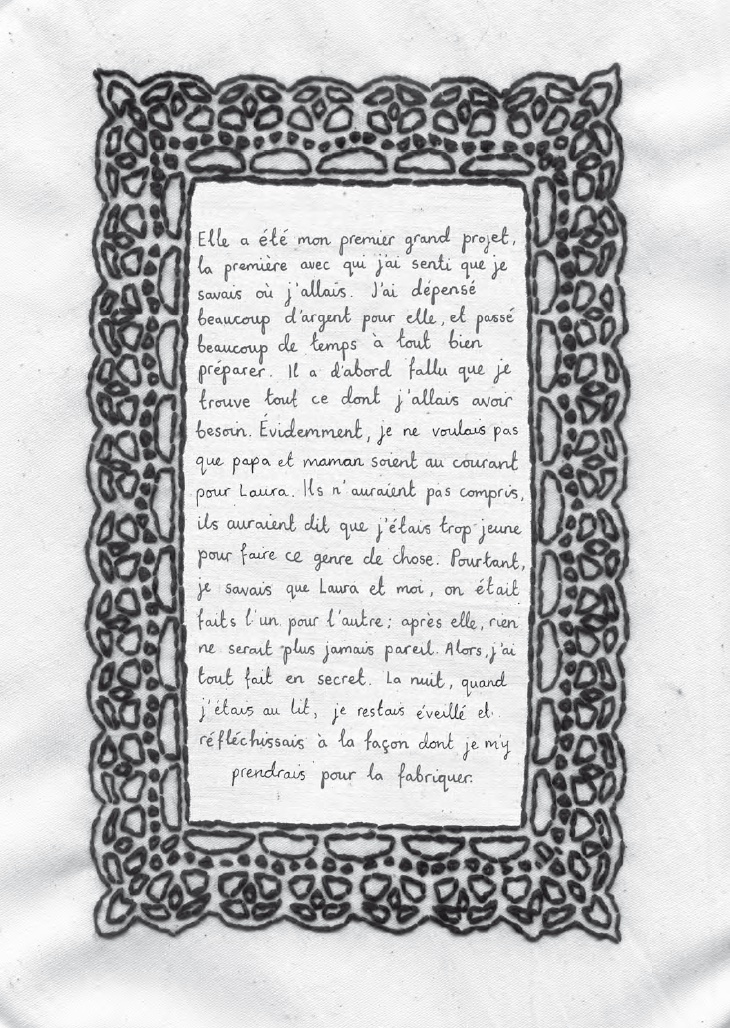 Elle a été mon premier grand projet,
la première avec qui j'ai senti que je
savais où j'allais. J'ai dépensé
beaucoup d'argent pour elle, et passé
beaucoup de temps à tout bien
préparer. Il a d'abord fallu que je
trouve tout ce dont j'allais avoir
besoin. Évidemment, je ne voulais pas
que papa et maman soient au courant
pour Laura. Ils n'auraient pas compris,
ils auraient dit que j'étais trop jeune
pour faire ce genre de chose. Pourtant,
je savais que Laura et moi, on était
faits l'un pour l'autre ; après elle, rien
ne serait plus jamais pareil. Alors, j'ai
tout fait en secret. La nuit, quand
j'étais au lit, je restais éveillé et
réfléchissais à la façon dont je m'y
prendrais pour la fabriquer.